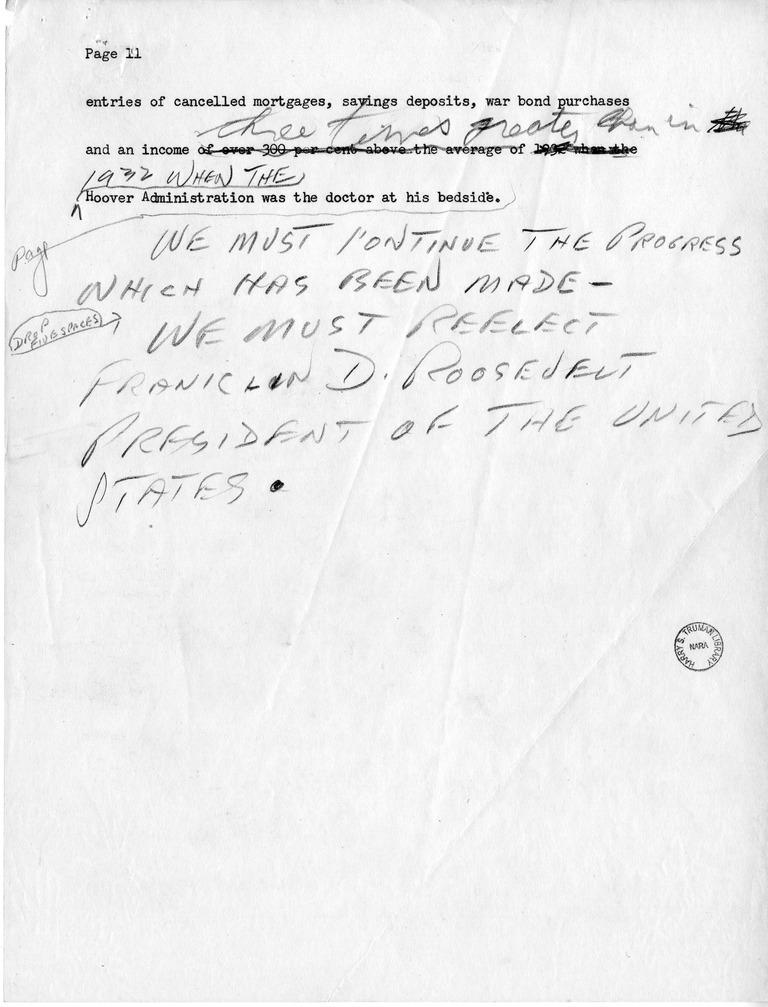 Page 11
entries of cancelled mortgages, savings deposits, war bond purchases
three times greater than in
and an income of over 300 per cent above the average of 1932 when the
1932 WHEN THE
Hoover Administration was the doctor at his bedside.
Page
WE MUST CONTINUE THE PROGRESS
WHICH HAS BEEN MADE —
DROP
FIVE SPACES
WE MUST REELECT
FRANKLIN D. ROOSEVELT
PRESIDENT OF THE UNITED
STATES.
HARRY S. TRUMAN LIBRARY
NARA